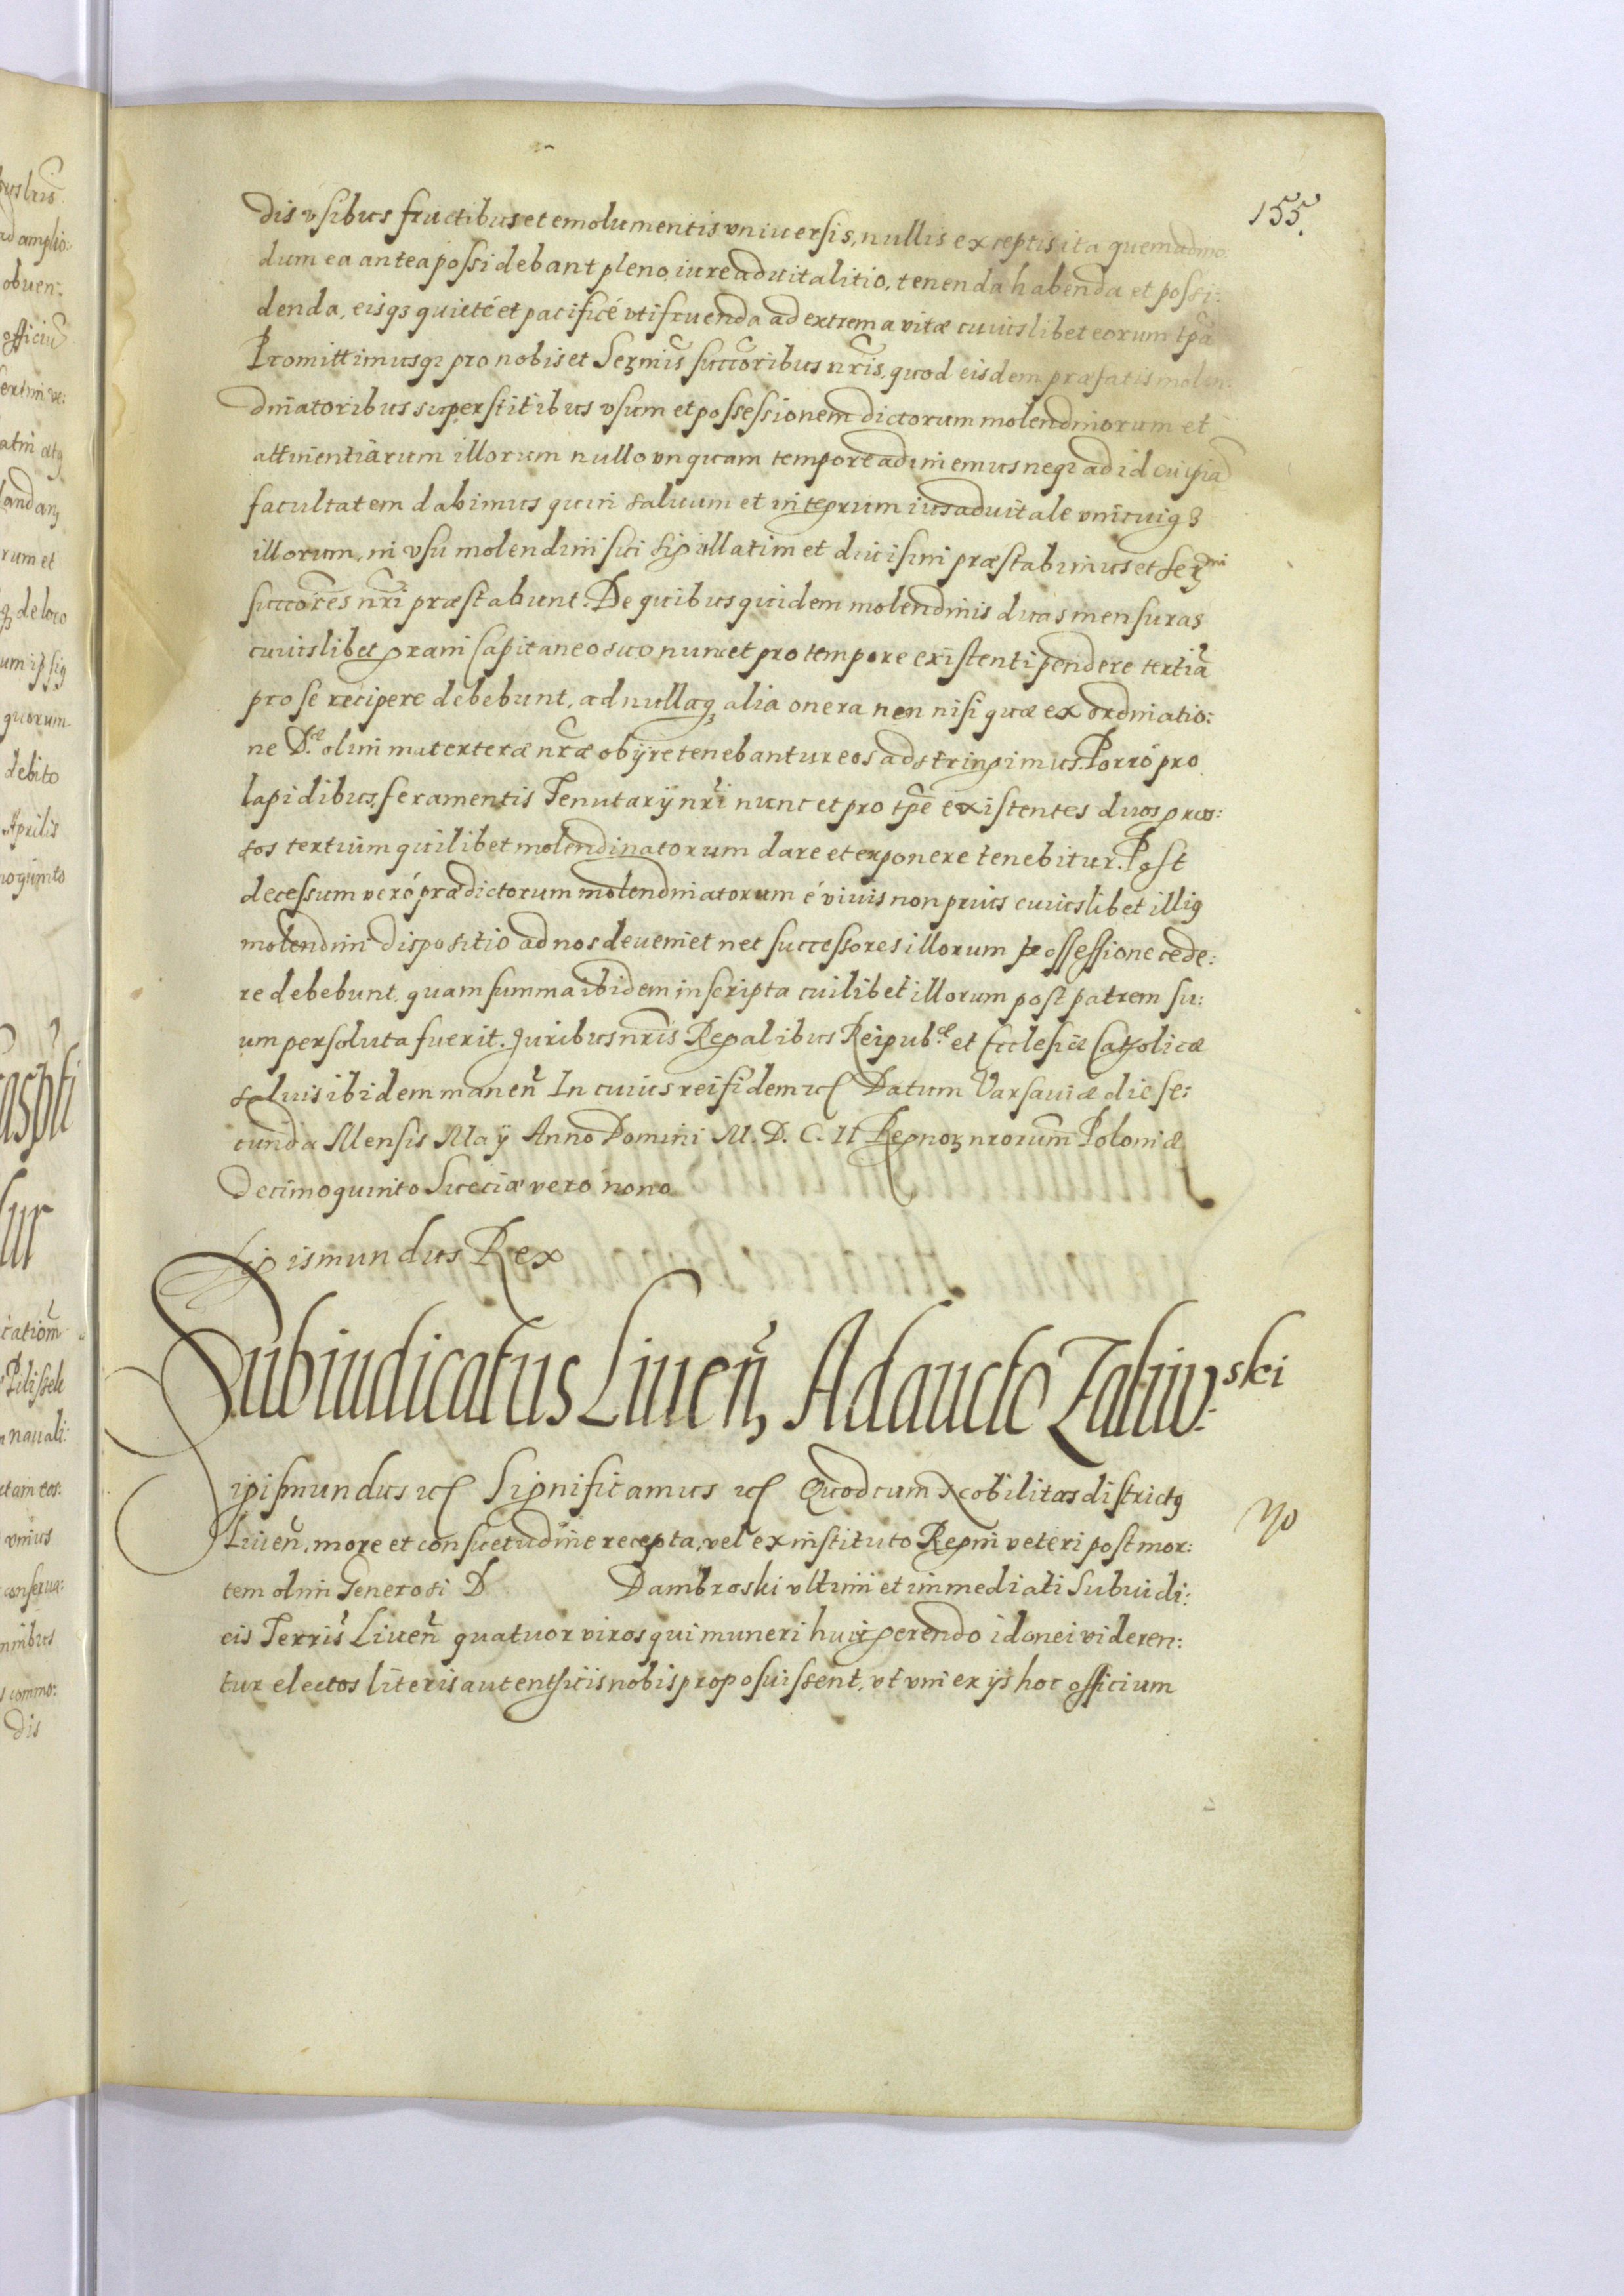 155.
dis vsibus fructibus et emolumentis vniuersis, nullis exceptis ita quemadmo:
dum ea antea possidebant pleno iure aduitalitio, tenenda habenda et possi:
denda, eisq3 quieté et pacificé vtifruenda ad extrema vitæ cuiuslibet eorum tpã
Promittimusq3 pro nobis et Sermis succoribus nris, quod eisdem præfatis molen:
dinatoribus superstitibus vsum et possessionem dictorum molendinorum et
attinentiarum illorum nullo vnquam tempore adimemus neq3 ad id cuipiã
facultatem dabimus quin saluum et integrum ius aduitale vnicuiq3
illorum, in vsu molendini sui sigillatim et diuisim præstabimus et Sermi
succores nri præstabunt. De quibus quidem molendinis duas mensuras
cuiuslibet grani Capitaneo suo nunc et pro tempore existenti pendere tertiã
pro se recipere debebunt, ad nullaq3 alia onera non nisi quæ ex ordinatio:
ne D.æ olim materteræ nræ obire tenebantur eos adstringimus. Porró pro
lapidibus, feramentis Tenutarij nri nunc et pro tpe existentes duos gros:
sos tertium quilibet molendinatorum dare et exponere tenebitur. Post
decessum veró prædictorum molendinatorum é viuis non prius cuiuslibet illig
molendini dispositio ad nos deueniet nec successores illorum possessione cede:
re debebunt, quam summa ibidem inscripta cuilibet illorum post patrem su:
um persoluta fuerit. Juribus nris Regalibus Reipub.æ et Ecclesiæ Catholicæ
saluis ibidem manen In cuius rei fidem etc Datum Varsauiæ die se:
cunda Mensis Maij Anno Domini M. D. C. II Regnor3 nrorum Poloniæ
Decimoquinto Sueciæ veró nono
Sigismundus Rex
Subiudicatus Liuen, Adaucto Zaliw.ski
Sigismundus etc Significamus etc Quod cum Nobilitas districtg
Liuen, more et consuetudine recepta, vel ex instituto Regni veteri post mor:
tem olim Generosi D Dambroski vltimi et immediati Subiudi:
cis Terris Liuen quatuor viros qui muneri huic gerendo idonei videren:
tur electos literis autenthicis nobis proposuissent, vt vni ex ijs hoc officium